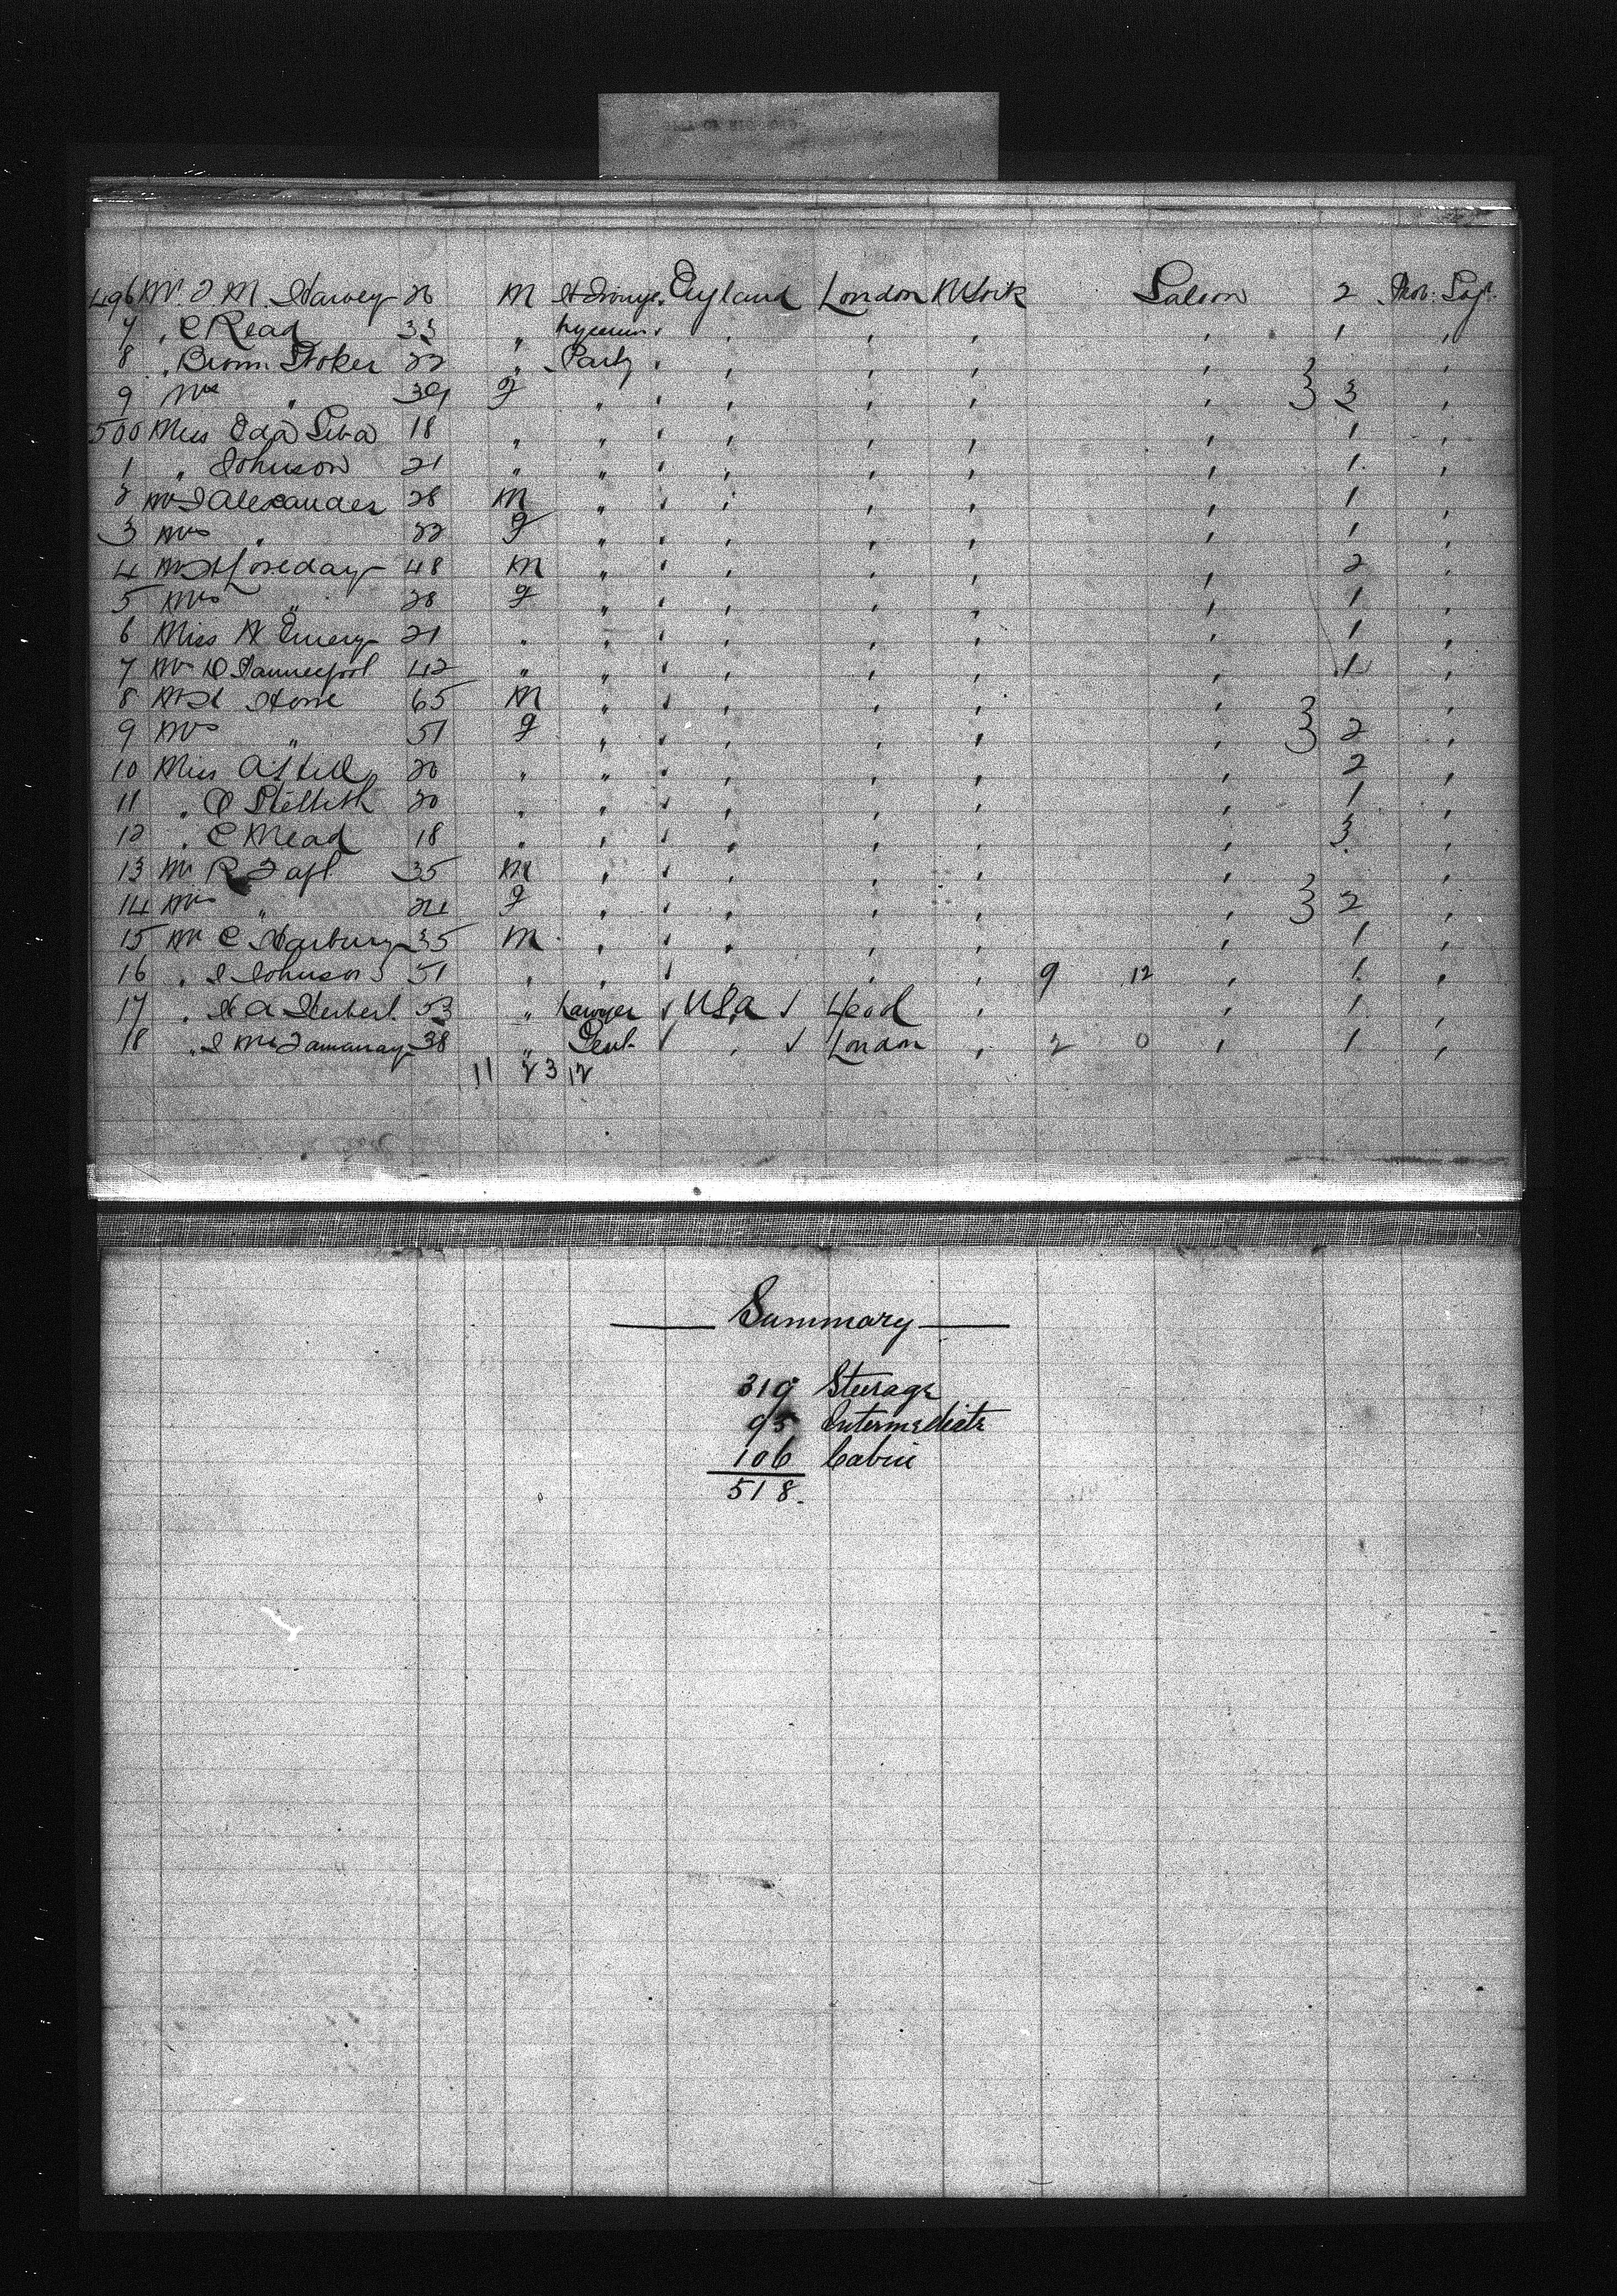 496 Mr. F M. Harvey 26 M England London N York Saloon 2 Prob: Soj:
7 " C Read 33 " Lyceum " " " " 1 "
8 " Brom Stoker 22 " Party " " " " "
9 Mrs " 39 F " " " " " 3 "
500 Miss Ida 18 " " " " " " 1 "
1 " Johnson 21 " " " " " " 1 "
2 Mr Alexander 28 M " " " " " 1 "
3 Mrs " 22 F " " " " " 1 "
4 Mr H Loveday 48 M " " " " " 2 "
5 Mrs " 28 F " " " " " 1 "
6 Miss W Emery 21 " " " " " " 1 "
7 Mr 42 " " " " " " 1 "
8 Mr H Howe 65 M " " " " " "
9 Mrs " 51 F " " " " " 2 "
10 Miss 20 " " " " " " 2 "
11 " 20 " " " " " " 1 "
12 " C Mead 18 " " " " " " 3 "
13 Mr R Taft 35 M " " " " " "
14 Mrs " 24 F " " " " " 2 "
15 Mr C Harbury 35 M " " " " " 1 "
16 " J Johnson 51 " " " " " 9 12 " 1 "
17 " H A Herbert 53 " Lawyer USA Lpool " " 1 "
18 " 38 " Gent " London " 2 0 " 1 "
11 2 3 12
Summary
319 Steerage
95 Intermediate
106 Cabin
518.